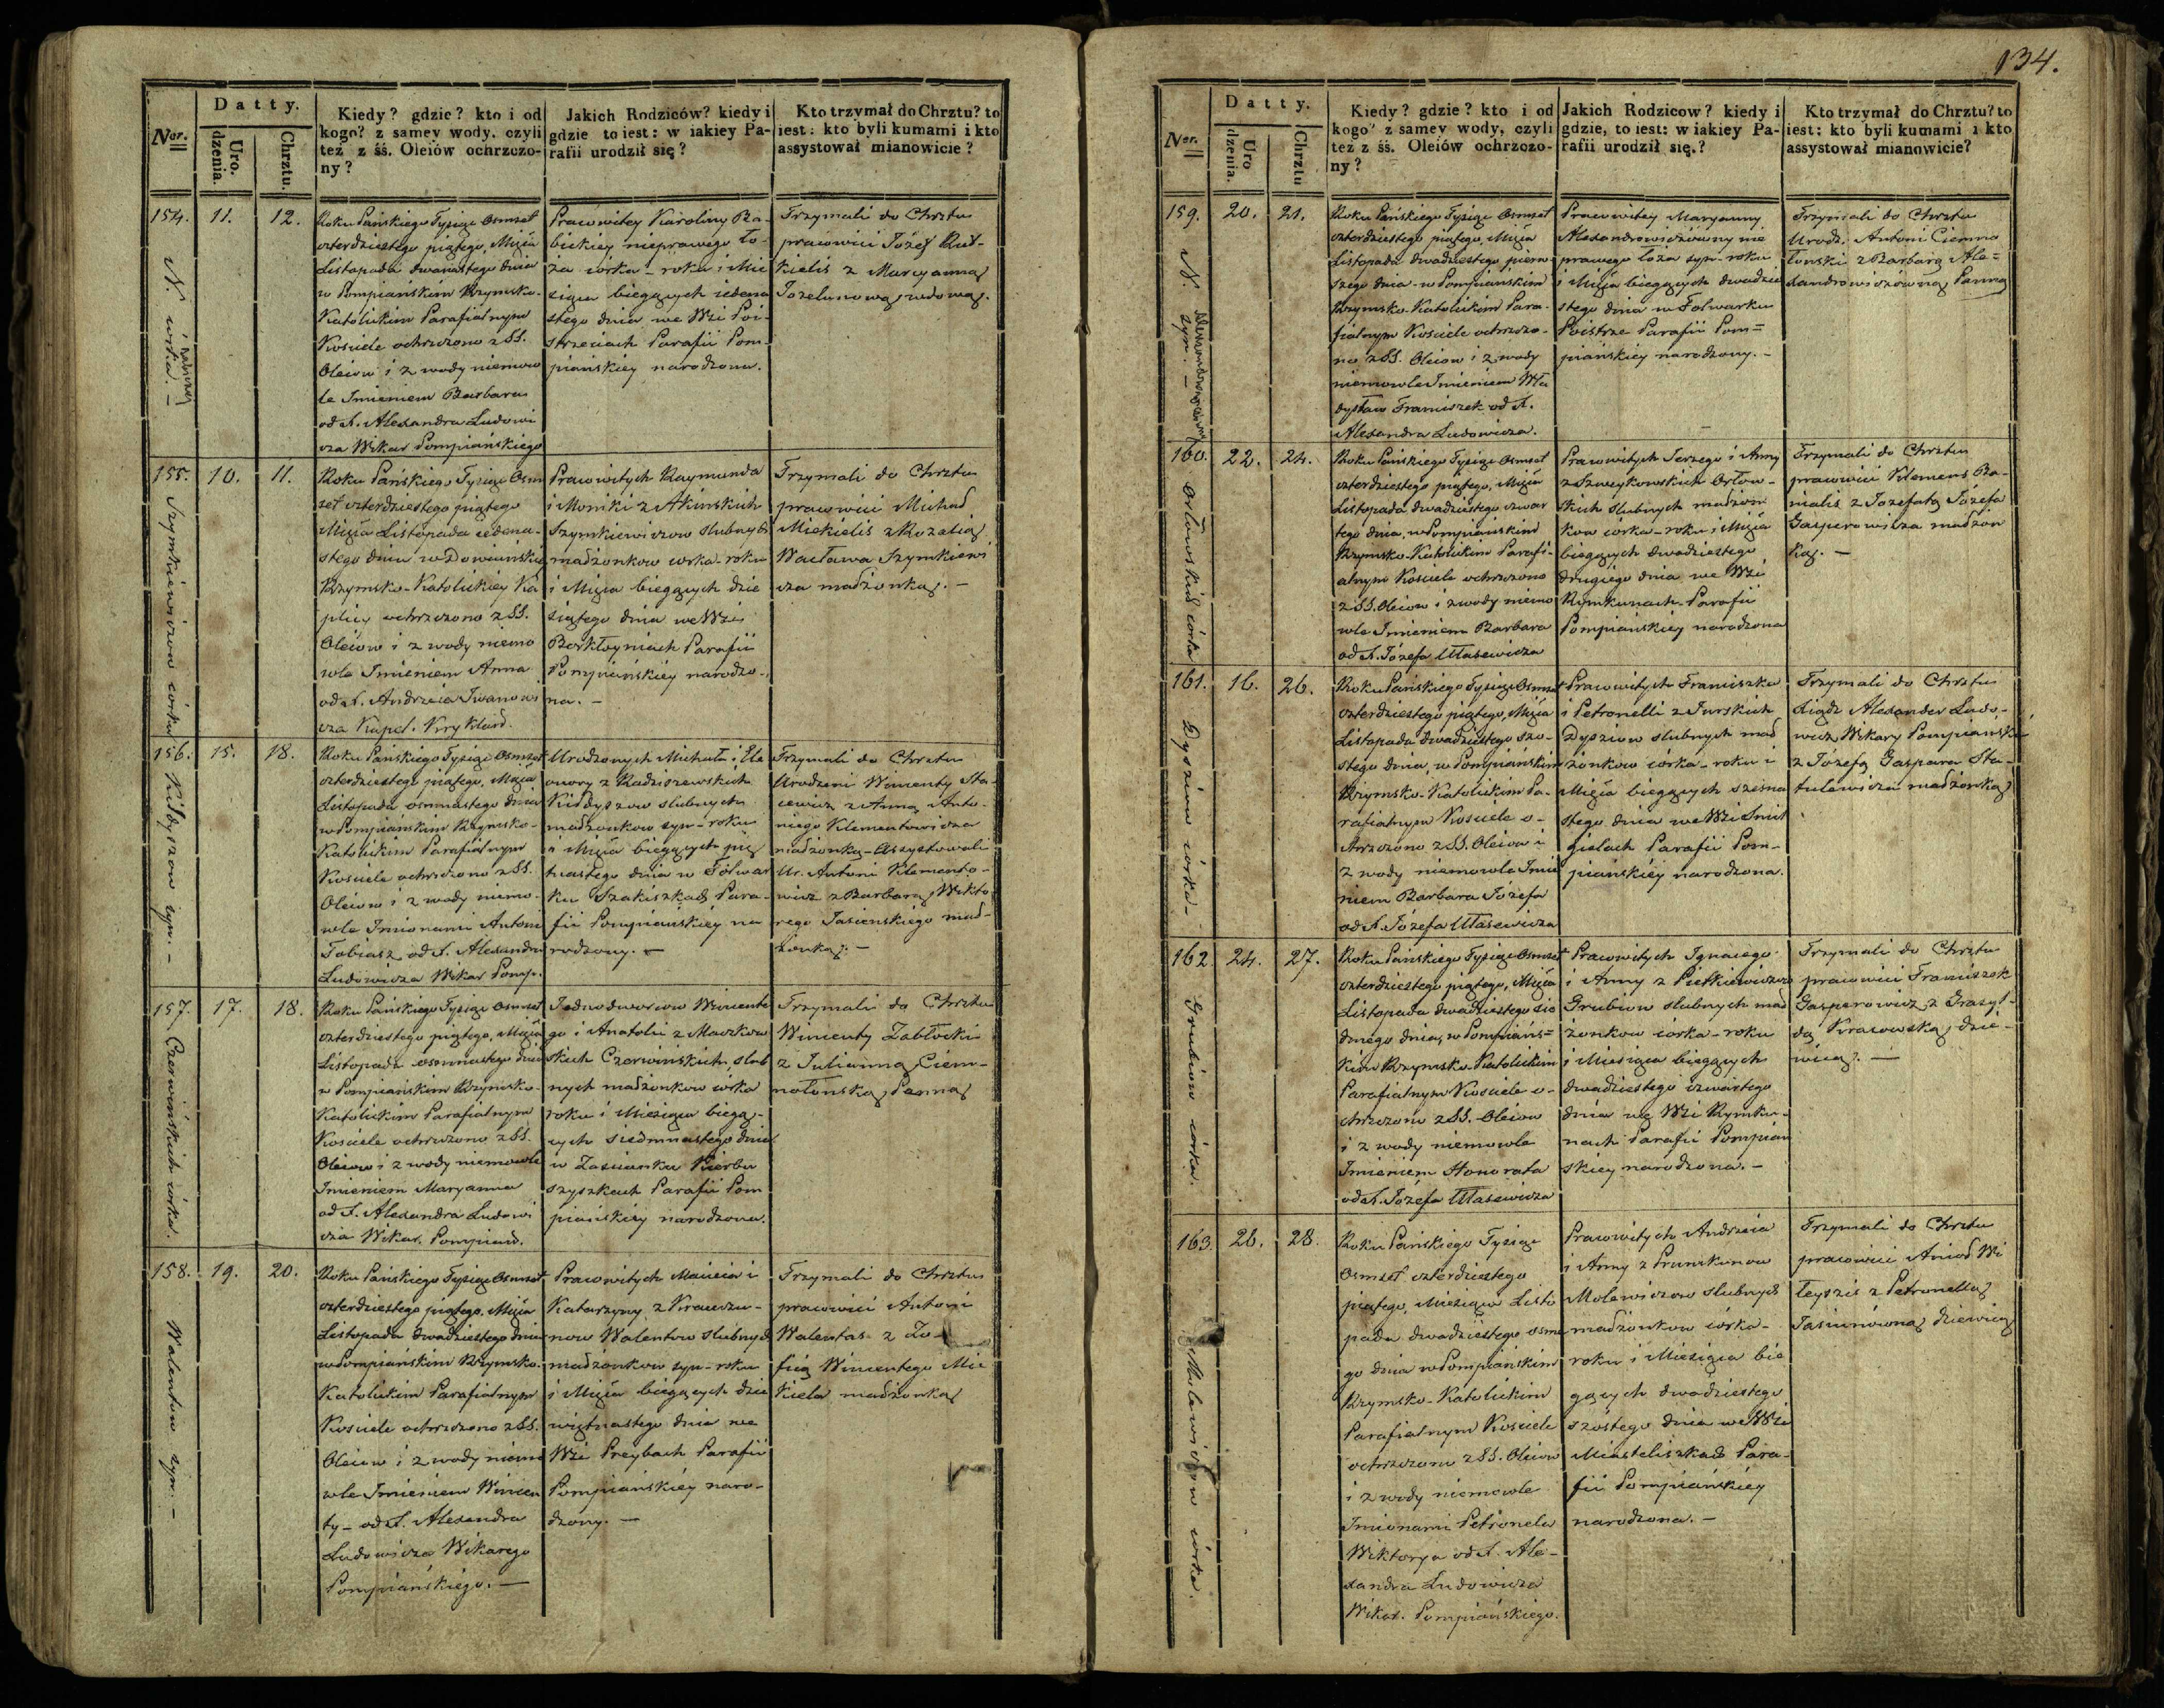 Ner.
Datty.
Uro.
dzenia.
Chrztu.
Kiedy? gdzie? kto i od
kogo? z samey wody, czyli
też z śś. Oleiów ochrzczo-
ny?
Jakich Rodziców? kiedy i
gdzie to iest: w iakiey Pa-
rafii urodził się?
Kto trzymał do Chrztu? to
iest: kto byli kumami i kto
assystował mianowicie?
154.
N. córka.
11.
12.
Roku Pańskiego Tysiąc Osmset
czterdziestego piątego, Mięsia
Listopada dwunastego dnia
w Pompiańskim Rzymsko-
Katolickim Parafialnym
Kosciele ochrzczono z SS.
Oleiow i z wody niemow
le Imieniem Barbara
od X. Alexandra Ludowi
cza Wikar Pompiańskiego
Pracowitey Karoliny Ba-
bickiey nieprawego ło-
ża córka - roku i Mie
siąca bieżących iedena
stego dnia we Wsi Poi-
strzeciach Parafii Pom-
piańskiey narodzona.
Trzymali do Chrztu
pracowici Józef Rud-
kielis z Maryanną
Jozelunową wdową.
155.
Szymkiewiczow córka
10.
11.
Roku Pańskiego Tysiąc Osm
set czterdziestego piątego
Mięsia Listopada iedena-
stego dnia w Dowiańskiey
Rzymsko-Katolickiey Ka
plicy ochrzczono z SS.
Oleiow i z wody niemo
wle Imieniem Anna
od X. Andrzeia Iwanowi
cza Kapel. Krykland.
Pracowitych Raymunda
i Moniki z Akinskich
Szymkiewiczow slubnych
madżonkow corka - roku
i Mięsia bieżących dzie
siątego dnia we Wsi
Borkłoyniach Parafii
Pompiańskiey narodzo-
na. -
Trzymali do Chrztu
pracowici Michał
Mickielis z Rozalią
Wacława Szymkiewi
cza madżonką. -
156.
Kiłdyszow syn. -
15.
18.
Roku Pańskiego Tysiąc Osmset
czterdziestego piątego, Mięsia
Listopada osmnastego dnia
w Pompiańskim Rzymsko-
Katolickim Parafialnym
Kosciele ochrzczono z SS.
Oleiow i z wody niemo-
wle Imionami Antoni
Tobiasz od X. Alexandra
Ludowicza Wikar Pomp.
Urodzonych Michała i Ele
onory z Radziszewskich
Kiełdyszow slubnych
madżonkow syn - roku
i Mięsia bieżących pię
tnastego dnia w Folwar
ku Szakiszkach Para-
fii Pompiańskiey na
rodzony. -
Trzymali do Chrztu
Urodzeni Wincenty Sta-
cewicz z Anną Anto-
niego Klementowicza
madżonką - Assystowali
Ur. Antoni Klemento-
wicz z Barbarą Wikto-
rego Jasienskiego mad-
żonką. -
157.
Czerwińskich córka.
17.
18.
Roku Pańskiego Tysiąc Osmset
czterdziestego piątego, Mięsia
Listopada osmnastego dnia
w Pompiańskim Rzymsko-
Katolickim Parafialnym
Kosciele ochrzczono z SS.
Oleiow i z wody niemowle
Imieniem Maryanna
od X. Alexandra Ludowi
cza Wikar. Pompiań.
Jednodworcow Wincente
go i Anatolii z Maczkow
skich Czerwińskich slub
nych madżonkow córka
roku i Miesiąca bieżą-
cych siedmnastego dnia
w Zascianku Kierbu
szyszkach Parafii Pom
piańskiey narodzona.
Trzymali do Chrztu
Wincenty Zabłocki
z Julianną Ciem-
nołonską Panną
158.
Walentow syn. -
19.
20.
Roku Pańskiego Tysiąc Osmset
czterdziestego piątego, Mięsia
Listopada dwudziestego dnia
w Pompiańskim Rzymsko-
Katolickim Parafialnym
Kosciele ochrzczono z SS.
Oleiow i z wody niemo
wle Imieniem Wincen
ty - od X. Alexandra
Ludowicza Wikarego
Pompiańskiego. -
Pracowitych Macieia i
Katarzyny z Krawczu-
now Walentow slubnych
madżonkow syn - roku
i Mięsia bieżących dzie
więtnastego dnia we
Wsi Preybach Parafii
Pompiańskiey naro-
dzony. -
Trzymali do Chrztu
pracowici Antoni
Walentas z Zo-
fią Wincentego Mic
kiela madżonką
134.
Ner.
Datty.
Uro
dzenia.
Chrztu
Kiedy? gdzie? kto i od
kogo? z samey wody, czyli
też z śś. Oleiów ochrzczo-
ny?
Jakich Rodzicow? kiedy i
gdzie, to iest: w iakiey Pa-
rafii urodził się.?
Kto trzymał do Chrztu? to
iest: kto byli kumami i kto
assystował mianowicie?
159.
N. syn. -
20.
21.
Roku Pańskiego Tysiąc Osmset
czterdziestego piątego, Mięsia
Listopada dwudziestego pierw
szego dnia - w Pompiańskim
Rzymsko-Katolickim Para-
fialnym Kosciele ochrzczo-
no z SS. Oleiow i z wody
niemowle Imieniem Wła
dysław Franciszek od X.
Alexandra Ludowicza.
Pracowitey Maryanny
Alexandrowiczówny nie
prawego łoża syn - roku
i Mięsia bieżących dwudzie
stego dnia w Folwarku
Poistrze Parafii Pom=
piańskiey narodzony. -
Trzymali do Chrztu
Urodz. Antoni Ciemno
łonski z Barbarą Ale=
xandrowiczówną Panną
160.
Orłowskich córka
22.
24.
Roku Pańskiego Tysiąc Osmset
czterdziestego piątego, Mięsia
Listopada dwudziestego czwar
tego dnia, w Pompiańskim
Rzymsko-Katolickim Parafi-
alnym Kosciele ochrzczono
z SS. Oleiow i z wody niemo
wle Imieniem Barbara
od X. Józefa Ułasewicza
Pracowitych Jerzego i Anny
z Szweykowskich Orłow-
skich slubnych madżon
kow córka - roku i Mięsia
bieżących dwudziestego
drugiego dnia we Wsi
Rymkunach Parafii
Pompiańskiey narodzona
Trzymali do Chrztu
pracowici Klemens Ra-
mialis z Jozefatą Józefa
Gasperowicza madżon
ką. -
161.
Dysziow córka -
16.
26.
Roku Pańskiego Tysiąc Osmset
czterdziestego piątego, Mięsia
Listopada dwudziestego szo-
stego dnia, w Pompiańskim
Rzymsko-Katolickim Pa-
rafialnym Kosciele o-
chrzczono z SS. Oleiow i
z wody niemowle Imie
niem Barbara Józefa
od X. Józefa Ułasewicza
Pracowitych Franciszka
i Petronelli z Jurskich
Dysziow slubnych mad
żonkow córka - roku i
Mięsia bieżących szesna
stego dnia we Wsi Smil
gielach Parafii Pom-
piańskiey narodzona.
Trzymali do Chrztu
Xiądz Alexander Ludo-
wicz Wikary Pompiański
z Józefą Gaspara Sta-
tulewicza madżonką
162.
Grubiow córka.
24.
27.
Roku Pańskiego Tysiąc Osmset
czterdziestego piątego, Mięsia
Listopada dwudziestego sió
dmego dnia, w Pompiańs=
kim Rzymsko-Katolickim
Parafialnym Kosciele o-
chrzczono z SS. Oleiow
i z wody niemowle
Imieniem Honorata
od X. Józefa Ułasewicza
Pracowitych Ignacego
i Anny z Pietkiewiczow
Grubiow slubnych mad
żonkow corka - roku
i Miesiąca bieżących
dwudziestego czwartego
dnia we Wsi Rymku-
nach Parafii Pompian
skiey narodzona. -
Trzymali do Chrztu
pracowici Franciszek
Gasperowicz z Grasyl-
dą Krasowską dzie-
wicą. -
163.
Molewiczow córka.
26.
28.
Roku Pańskiego Tysiąc
Osmset czterdziestego
piątego, Miesiąca Listo
pada dwudziestego osme
go dnia w Pompiańskim
Rzymsko-Katolickim
Parafialnym Kosciele
ochrzczono z SS. Oleiow
i z wody niemowle
Imionami Petronela
Wiktorya od X. Ale-
xandra Ludowicza
Wikar. Pompiańskiego.
Pracowitych Andrzeia
i Anny z Prunskunow
Molewiczow slubnych
madżonkow córka -
roku i Miesiąca bie
żących dwudziestego
szóstego dnia we Wsi
Miasteliszkach Para-
fii Pompiańskiey
narodzona. -
Trzymali do Chrztu
pracowici Anioł Wi
łeyszis z Petronellą
Jasiunówną dziewicą